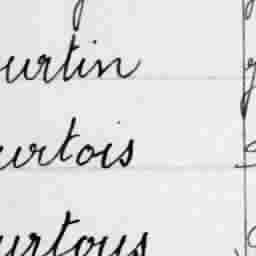 urtin
urtois
urtous